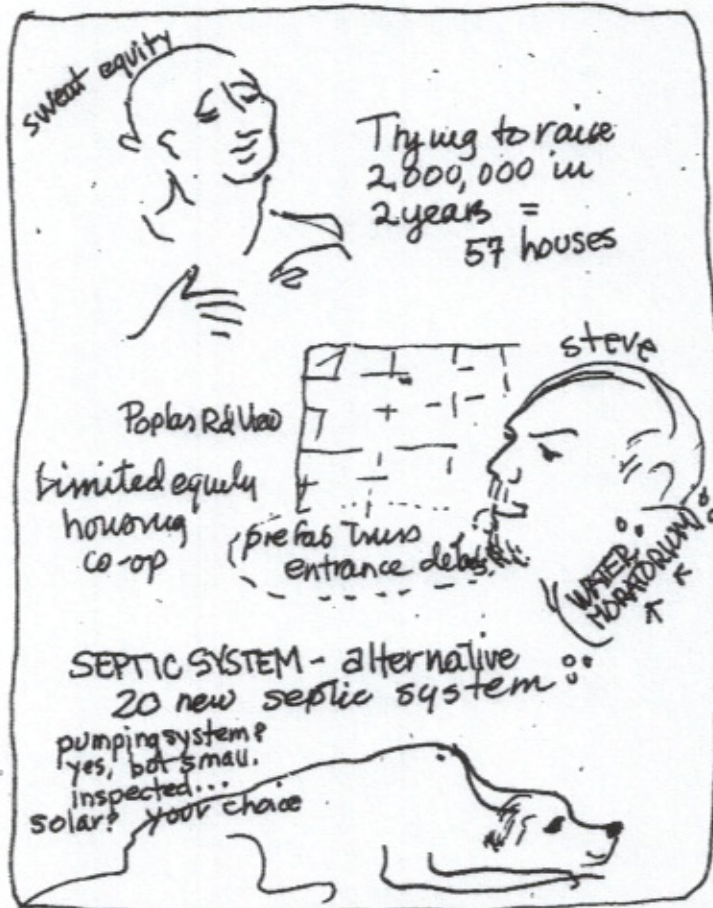 sweat equity
Trying to raise
2,000,000 in
2 years =
57 houses
steve
Rd View
Limited equity
housing
co-op
prefab Truss
entrance
WATER
MORATORIUM
SEPTIC SYSTEM - alternative
20 new septic system
pumping system?
yes, but small.
inspected...
solar? your choice